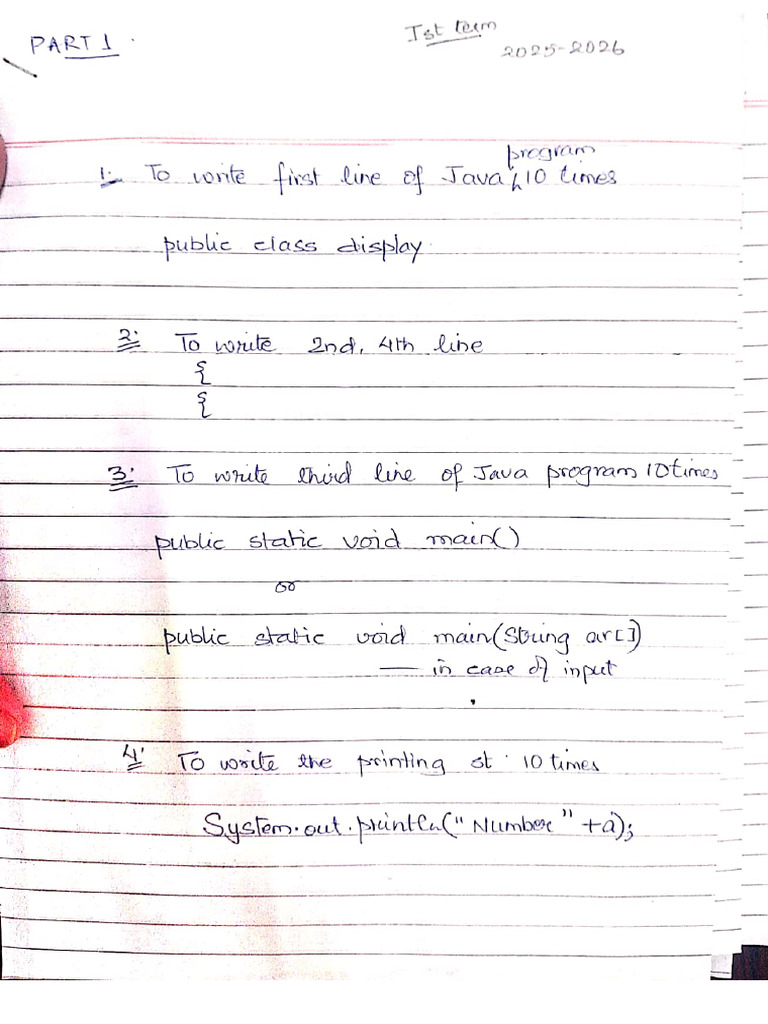 PART 1.
Ist term
2025-2026
1. To write first line of Java program 10 times
public class display.
2. To write 2nd, 4th line
{
{
3. To write third line of Java program 10 times
public static void main()
or
public static void main(String ar[])
— in case of input
4. To write the printing st. 10 times
System.out.println("Number" +a);